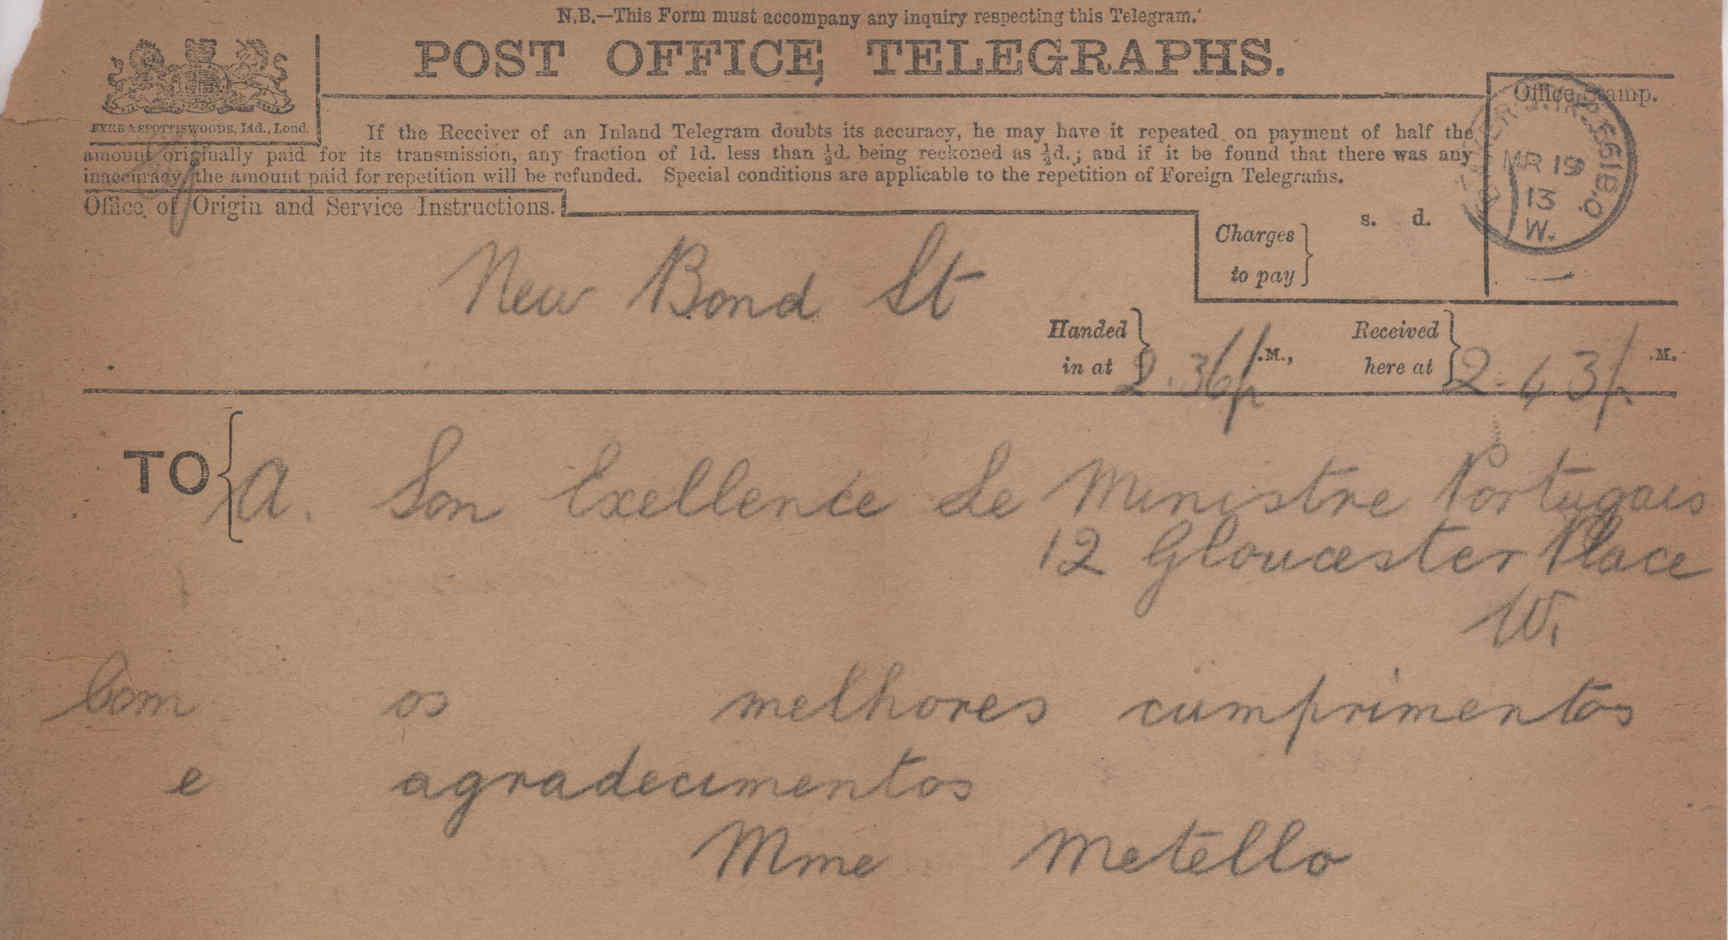 N.B.—This Form must accompany any inquiry respecting this Telegram.
POST OFFICE TELEGRAPHS.
EYRE & SPOTTISWOODE, Ltd., Lond.
If the Receiver of an Inland Telegram doubts its accuracy, he may have it repeated on payment of half the
amount originally paid for its transmission, any fraction of 1d. less than ½d. being reckoned as ½d.; and if it be found that there was any
inaccuracy, the amount paid for repetition will be refunded. Special conditions are applicable to the repetition of Foreign Telegrams.
Office Stamp.
B.O.
MR 19
13
W.
Office of Origin and Service Instructions.
New Bond St
Charges to pay
s. d.
Handed in at 2.36 p .M.,
Received here at 2.43 p .M.
TO
A. Son Exellence Le Ministre Portugais
12 Gloucester Place
W.
Com os melhores cumprimentos
e agradecimentos
Mme Metello